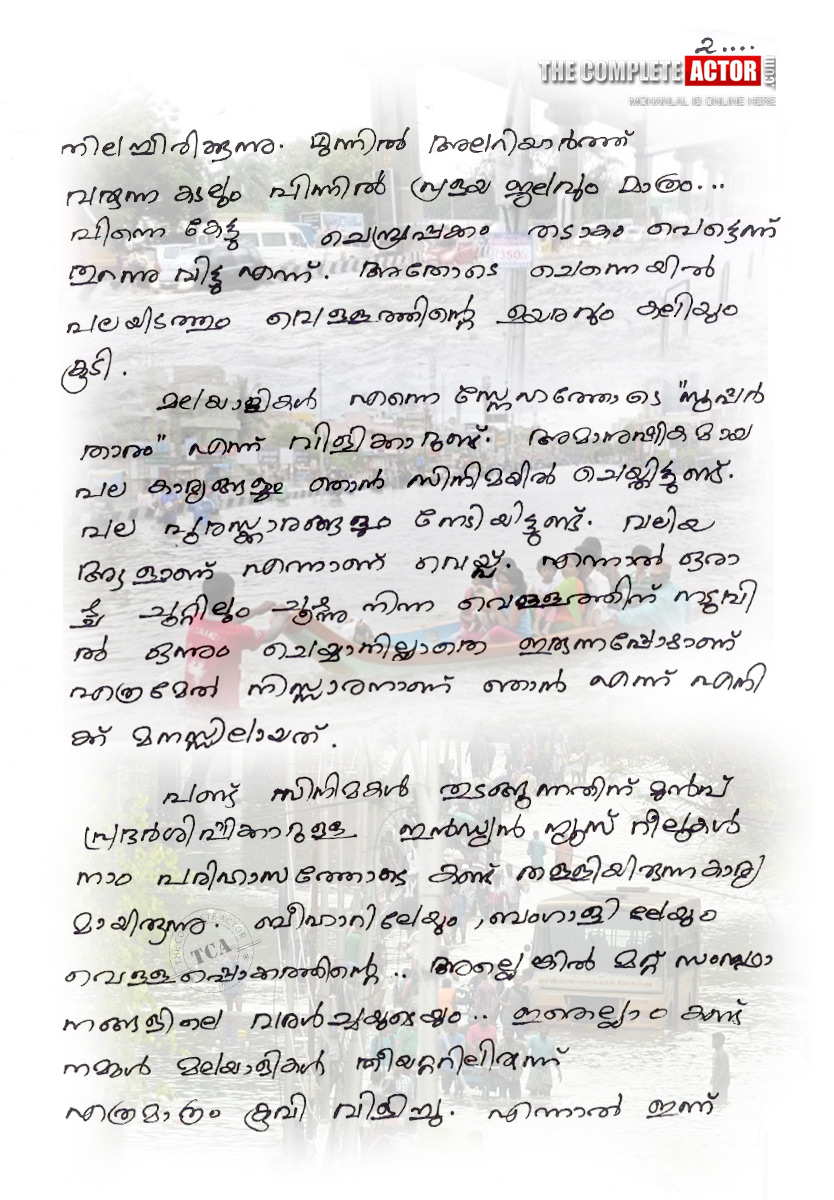 2....
THE COMPLETE ACTOR .com
MOHANLAL IS ONLINE HERE
നിലച്ചിരിക്കുന്നു. മുന്നിൽ അലറിയാർത്ത്
വരുന്ന കടലും പിന്നിൽ പ്രളയ ജലവും മാത്രം...
പിന്നെ കേട്ടു ചെമ്പ്രപക്കം തടാകം പെട്ടെന്ന്
തുറന്നു വിട്ടു എന്ന്. അതോടെ ചെന്നെയിൽ
പലയിടത്തും വെള്ളത്തിന്റെ ഉയരവും കലിയും
കൂടി.
മലയാളികൾ എന്നെ സ്നേഹത്തോടെ "സൂപ്പർ
താരം" എന്ന് വിളിക്കാറുണ്ട്. അമാനുഷികമായ
പല കാര്യങ്ങളും ഞാൻ സിനിമയിൽ ചെയ്തിട്ടുണ്ട്.
പല പുരസ്ക്കാരങ്ങളും നേടിയിട്ടുണ്ട്. വലിയ
ആളാണ് എന്നാണ് വെയ്പ്പ്. എന്നാൽ ഒരാ
ഴ്ച്ച ചുറ്റിലും ചൂഴ്ന്നു നിന്ന വെള്ളത്തിന് നടുവി
ൽ ഒന്നും ചെയ്യാനില്ലാതെ ഇരുന്നപ്പോഴാണ്
എത്രമേൽ നിസ്സാരനാണ് ഞാൻ എന്ന് എനി
ക്ക് മനസ്സിലായത്.
പണ്ട് സിനിമകൾ തുടങ്ങുന്നതിന് മുൻപ്
പ്രദർശിപ്പിക്കാറുള്ള ഇൻഡ്യൻ ന്യൂസ് റീലുകൾ
നാം പരിഹാസത്തോടെ കണ്ട് തള്ളിയിരുന്നകാര്യ
മായിരുന്നു. ബീഹാറിലേയും, ബംഗാളിലേയും
വെള്ളപ്പൊക്കത്തിന്റെ.. അല്ലെങ്കിൽ മറ്റ് സംസ്ഥാ
നങ്ങളിലെ വരൾച്ചയുടെയും.. ഇതെല്ലാം കണ്ട്
നമ്മൾ മലയാളികൾ തീയറ്ററിലിരുന്ന്
എത്രമാത്രം കൂവി വിളിച്ചു. എന്നാൽ ഇന്ന്
TCA